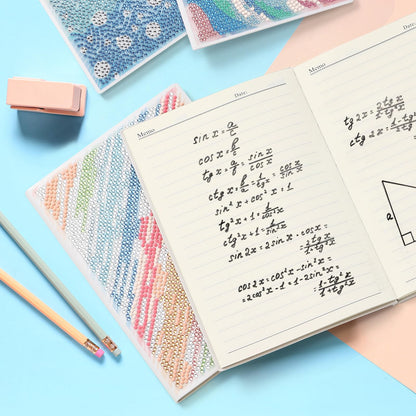 Memo Date:
sin x = a/c
cos x = b/c
tg x = a/b = sin x/cos x
ctg x = b/a = 1/tg x = cos x/sin x
sin² x + cos² x = 1
tg² x + 1 = 1/cos² x
ctg² x + 1 = 1/sin² x
sin 2x = 2sin x · cos x =
= 2tg x/1+tg² x
cos 2x = cos² x - sin² x =
= 2cos² x - 1 = 1 - 2sin² x =
= 1-tg² x/1+tg² x
Memo Date:
tg 2x = 2tg x/1-tg² x
ctg 2x = 1-tg² x/2tg x
a